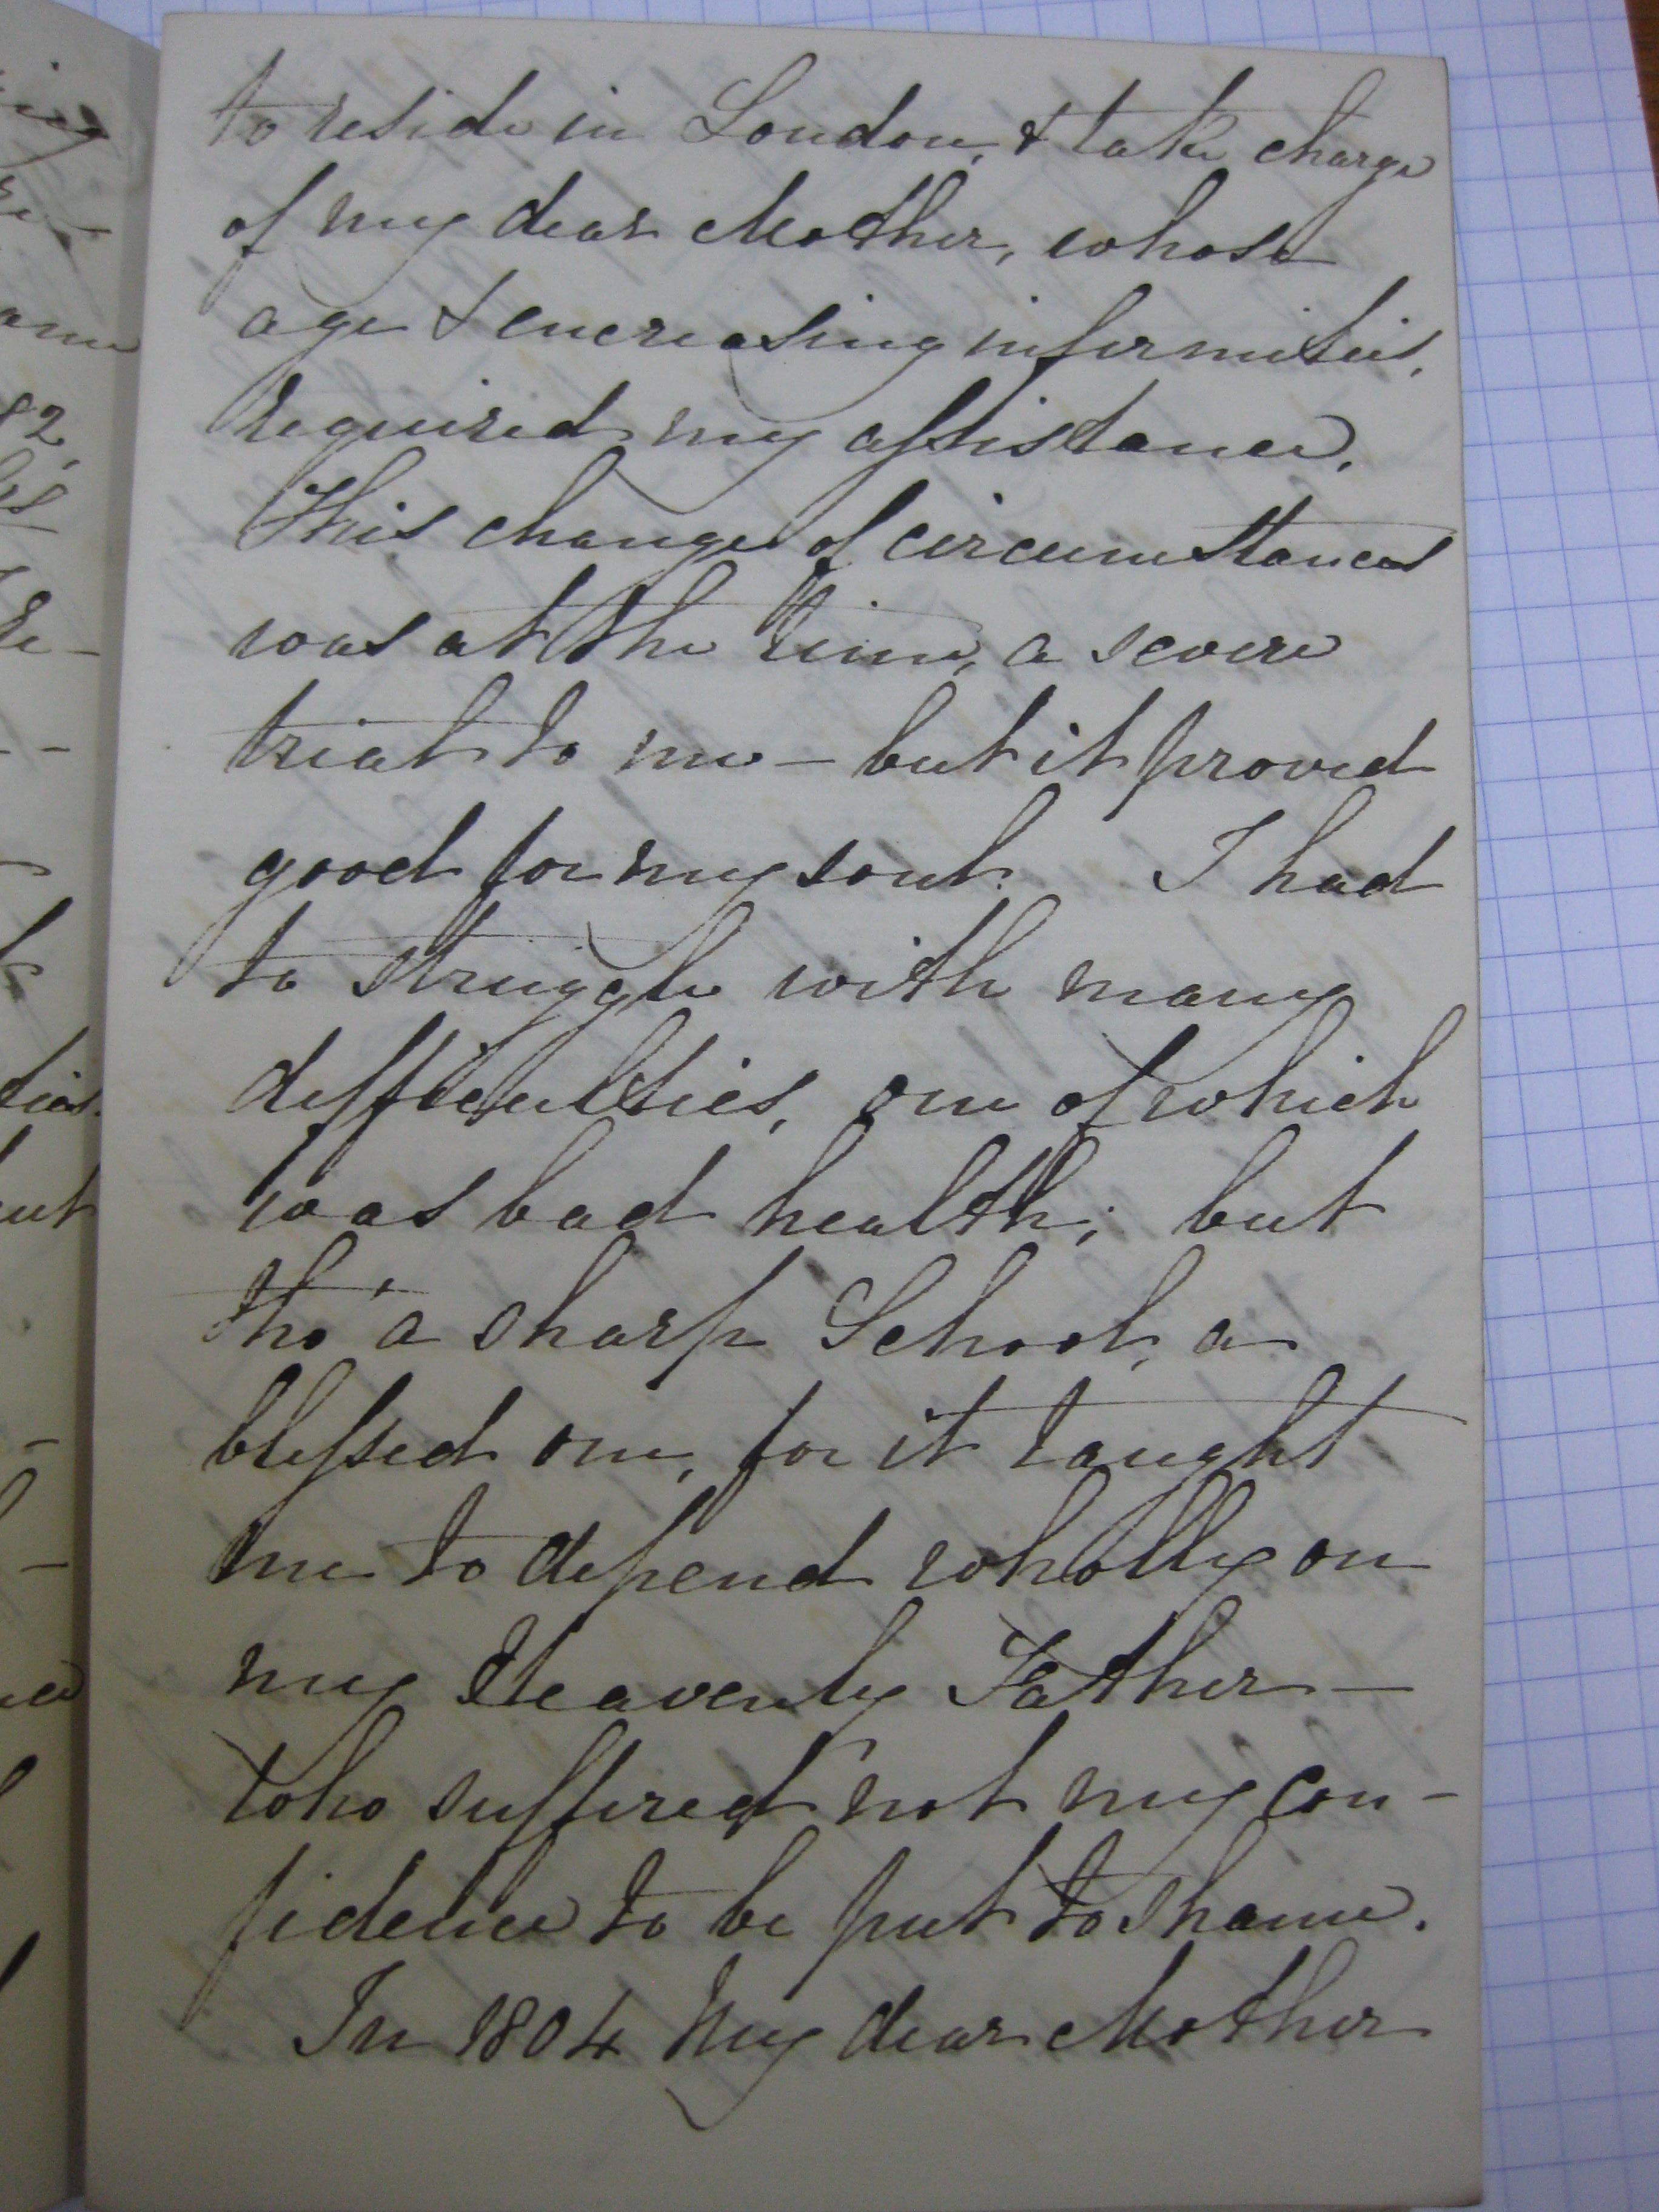 to reside in London, & take charge
of my dear Mother, whose
age & encreasing infirmities,
required my assistance.
This change of circumstances
was at the time, a severe
trial to me – but it proved
good for my soul. I had
to struggle with many
difficulties, one of which
was bad health; but
tho' a sharp School, a
blessed one, for it taught
me to depend wholly on
my Heavenly Father –
who suffered not my con-
fidence to be put to shame.
In 1804 My dear Mother